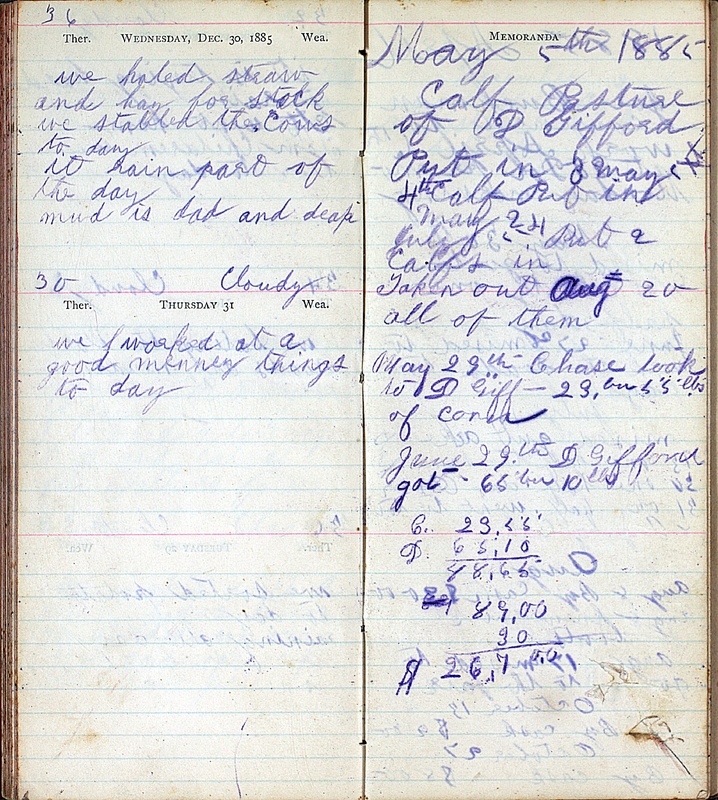 36
Ther. WEDNESDAY, DEC. 30, 1885 Wea.
we haled straw
and hay for stock
we stabled the Cows
to day
it rain part of
the day
mud is dad and deap
30 Cloudy
Ther. THURSDAY 31 Wea.
we worked at a
good menney things
to day
MEMORANDA
May 5th 1885
Calf Pasture
of D Gifford
Put in 3 May
4th Calf Put in
May 24
July 5 Put 2
Calfs in
Taken out Aug 20
all of them
May 29th Chase took
to D Giff — 23, bu 55 lbs
of corn
June 29th D Gifford
got — 65 bu 10 lbs
C. 23,55
D. 65,10
88,65
89,00
30
$ 26,7